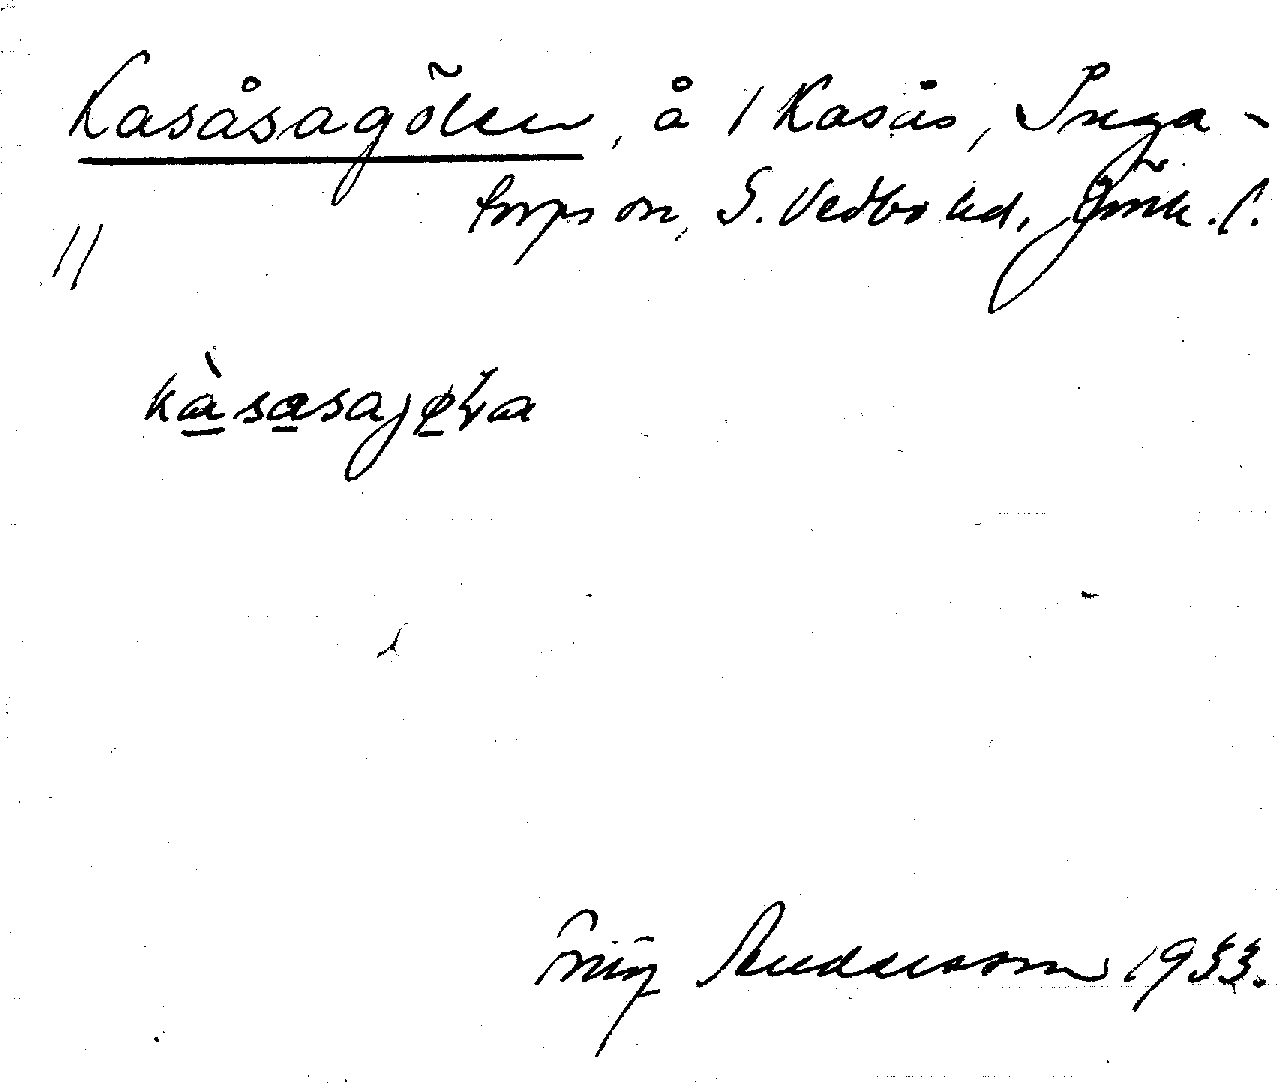 Kasåsagölen, å 1 Kasås, Inga-
torps sn, S. Vedbo hd, Jönk. l.
//
kàsasajøɫa
Fritz Andersson 1933.